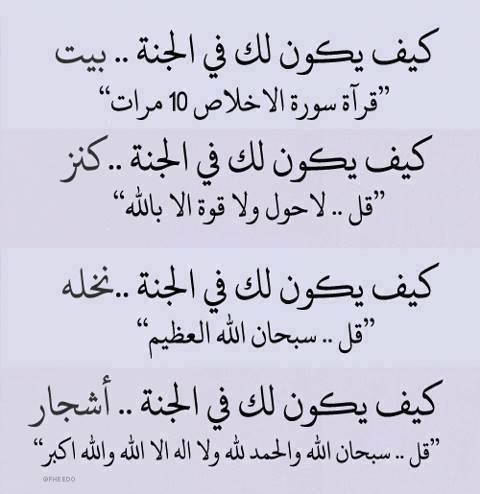 كيف يكون لك في الجنة .. بيت
”قرآة سورة الاخلاص 10 مرات“
كيف يكون لك في الجنة ..كنز
”قل .. لاحول ولا قوة الا بالله“
كيف يكون لك في الجنة ..نخله
”قل .. سبحان الله العظيم“
كيف يكون لك في الجنة .. أشجار
”قل .. سبحان الله والحمد لله ولا اله الا الله والله اكبر“
@FHEEDO